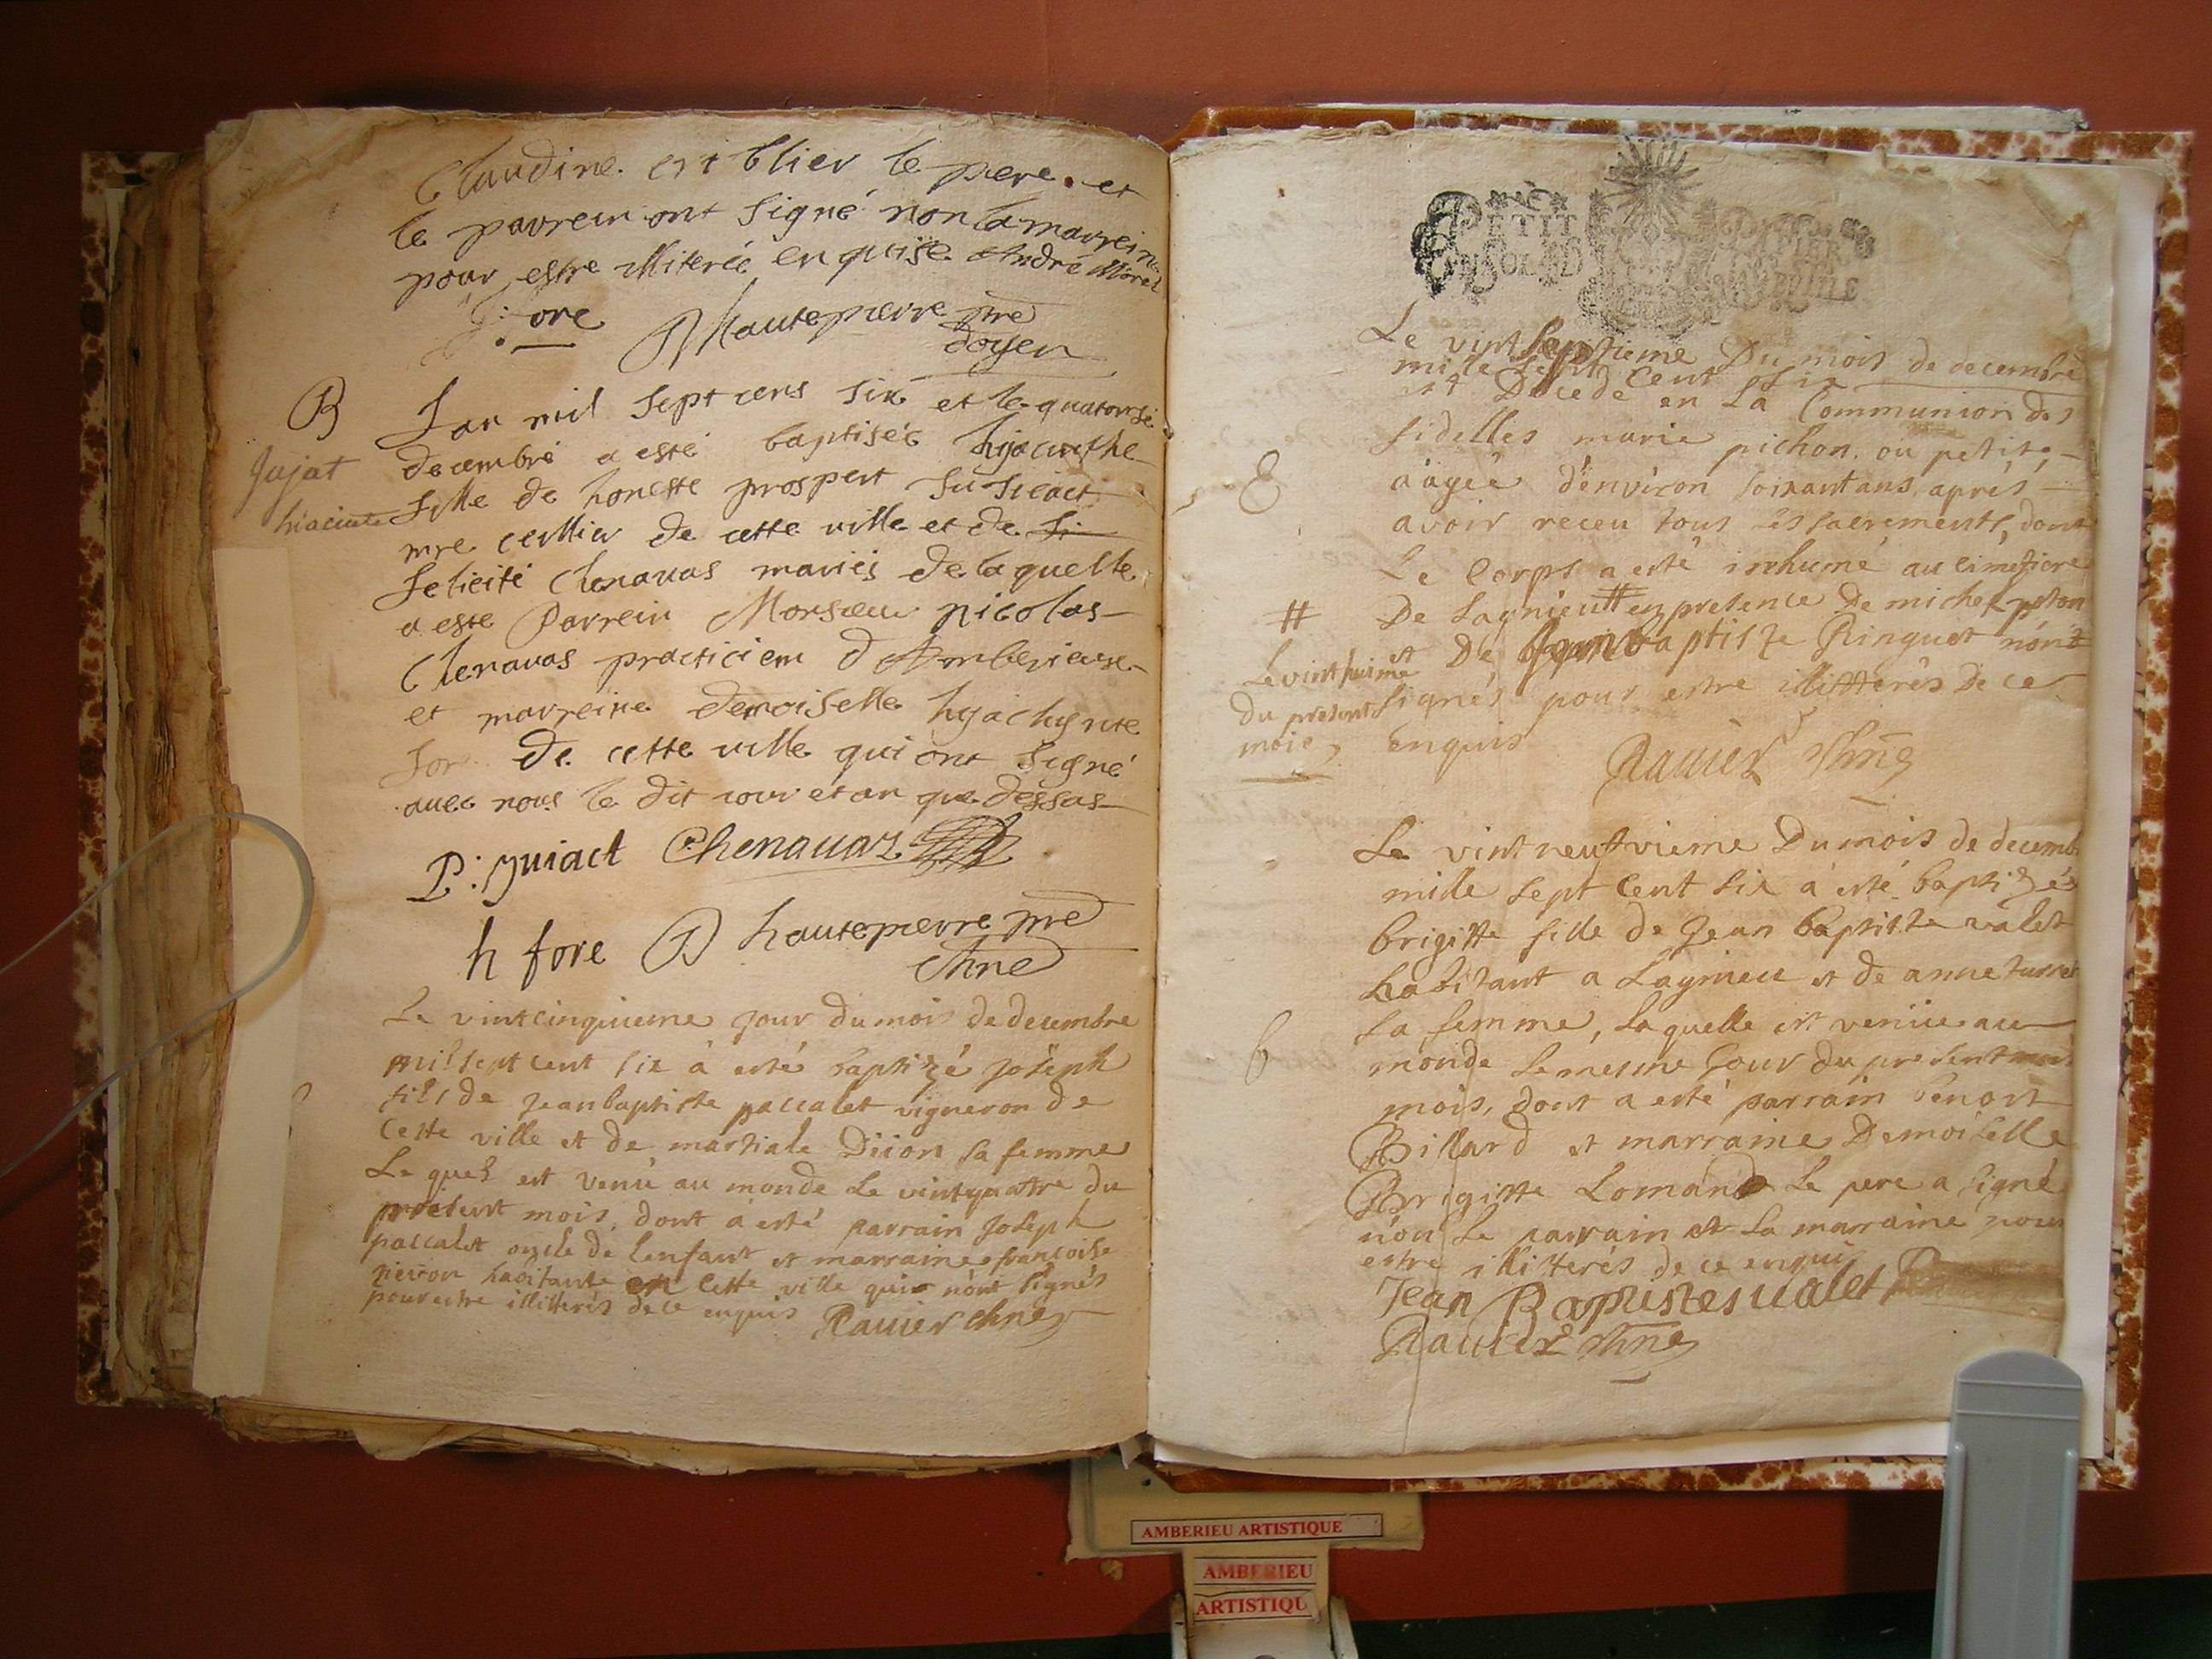 Claudine le pere. et
le parrein ont signé non la marreine
pour estre illiterée enquise André Morel
fore Hautepierre ptre
doyen
B
Jujat
hiacinte
Lan mil sept cens six et le quatorse
decembre a esté baptisée hyacinthe
fille de honeste prospert
mre cellier de cette ville et de
felicité Chenavas mariés de laquelle
a este Parrein Monsieur nicolas
Chenavas practicien d Amberieux
et marreine demoiselle hyachynte
fore de cette ville qui ont signé
avec nous le dit jour et an que dessas
P: Juiact Chenavaz
h fore B hautepierre ptre
chne
Le vintcinquieme jour du mois de decembre
mil sept cent six à esté baptizé joseph
fils de jean baptiste pascalet vigneron de
cette ville et de martiale Diion sa femme
Le quel est venu au monde Le vintquatre du
present mois, dont a esté parrain joseph
pascalet oncle de lenfant et marraine francoise
habitante en cette ville qui n'ont signés
pour estre illitterés de ce enquis Ravier chne
PETIT PAPIER
Le vint septieme Du mois de decembre
mille sept cent six
est Decedé en La Communion des
fidelles marie pichon ou petite
aagée d'environ soixant ans, aprés
avoir receu tous les sacrements, dont
Le Corps a esté inhumé au cimetiere
De Lagnieu # en presence De michel
et De Jean baptiste Ringuet n'ont
signés pour estre illitterés De ce
enquis
Ravier chne
#
Le vint huime
du present
mois
Le vint neufvieme Du mois de decembre
mille sept Cent six a esté baptizée
brigitte fille de Jean baptiste valet
habitant a Lagnieu et de anne
sa femme, Laquelle est venüe au
monde Le mesme Jour du present mois
mois, dont a esté parrain benoit
Billard et marraine Demoiselle
Brigitte Lomand Le pere a signé
non Le parrain et La marraine pour
estre illitterés de ce enquis
Jean Baptistes ualet
Ravier chne
AMBERIEU ARTISTIQUE
AMBERIEU
ARTISTIQU